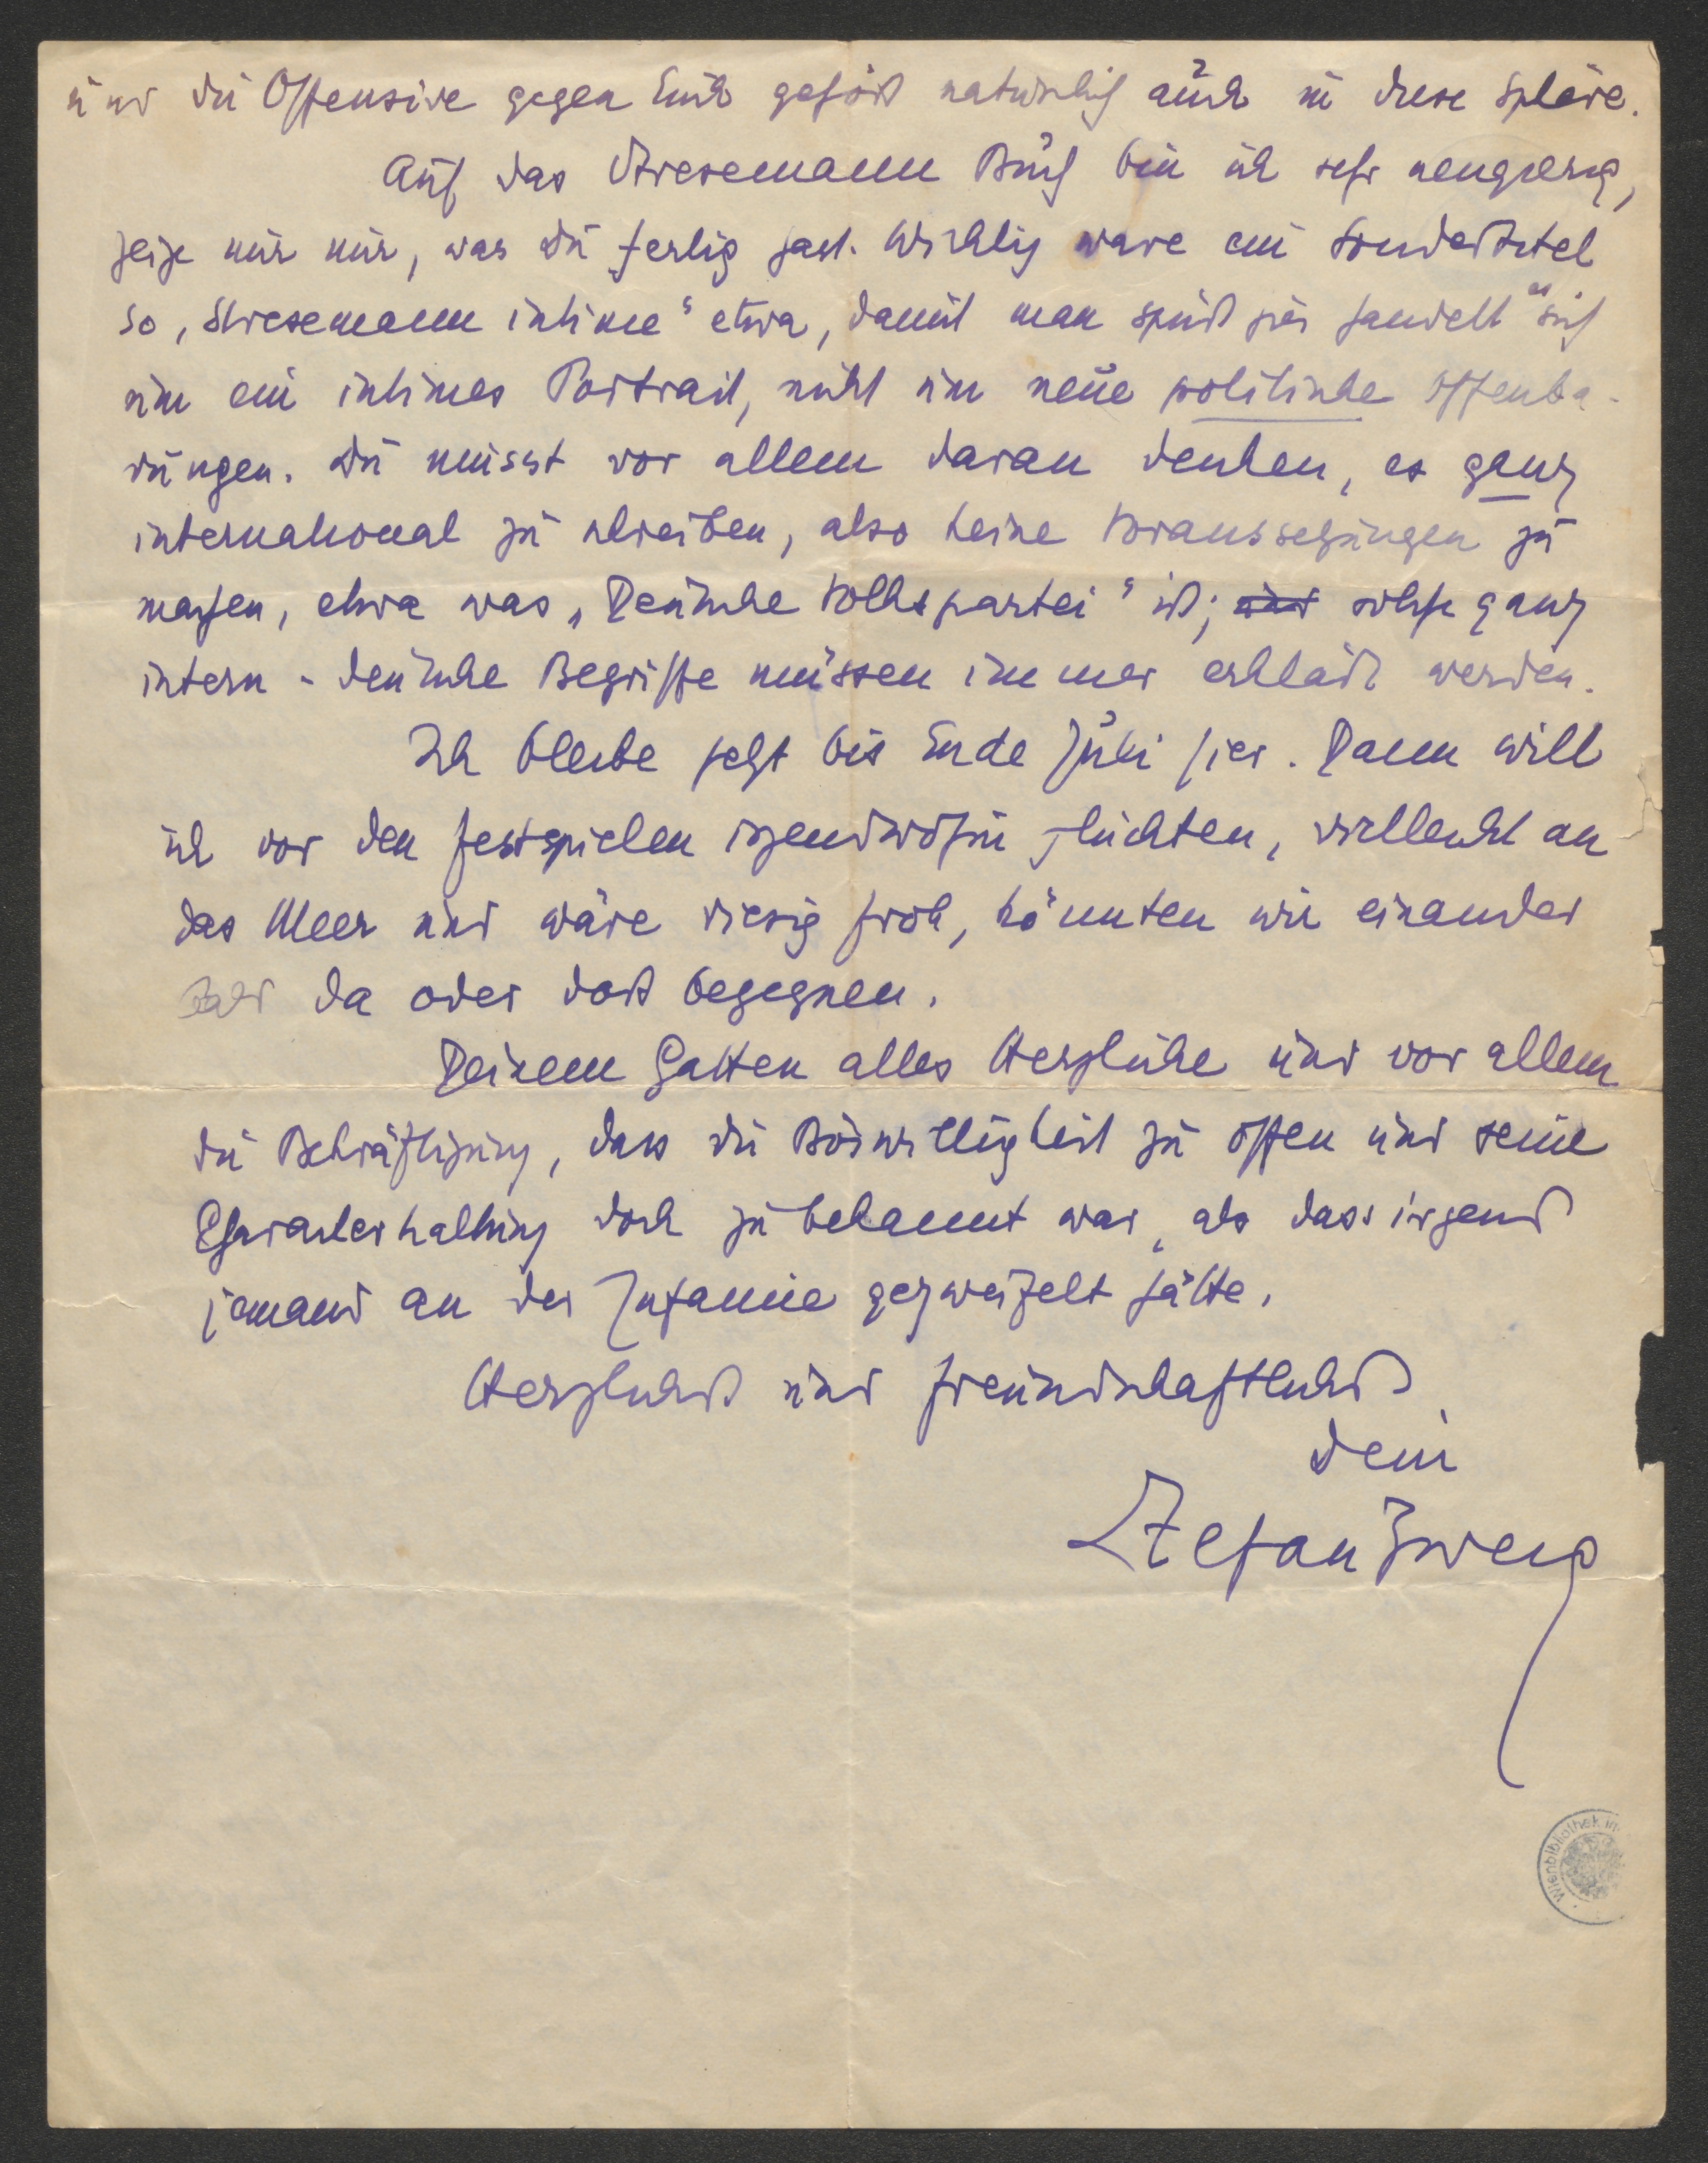 und die Offensive gegen Euch gehört natürlich auch in diese Sphäre.
Auf das Stresemann Buch bin ich sehr neugierig,
zeige mir nur, was Du fertig hast. Wichtig wäre ein Sondertitel
so „Stresemann intime" etwa, damit man spürt hier handelt es sich
um ein intimes Portrait, nicht um neue politische Offenba-
rungen. Du müsst vor allem daran denken, es ganz
international zu schreiben, also keine Voraussetzungen zu
machen, etwa was „Deutsche Volkspartei" ist; und solche ganz
intern-deutsche Begriffe müssen immer erklärt werden.
Ich bleibe jetzt bis Ende Juli hier. Dann will
ich vor den Festspielen irgendwohin flüchten, vielleicht an
das Meer und wäre riesig froh, könnten wir einander
da oder dort begegnen.
Deinem Gatten alles Herzliche und vor allem
die Bekräftigung, dass die Böswilligkeit zu offen und seine
Charakterhaltung doch zu bekannt war, als dass irgend
jemand an der Infamie gezweifelt hätte.
Herzlichst und freundschaftlichst
Dein
Stefan Zweig
Wienbibliothek im